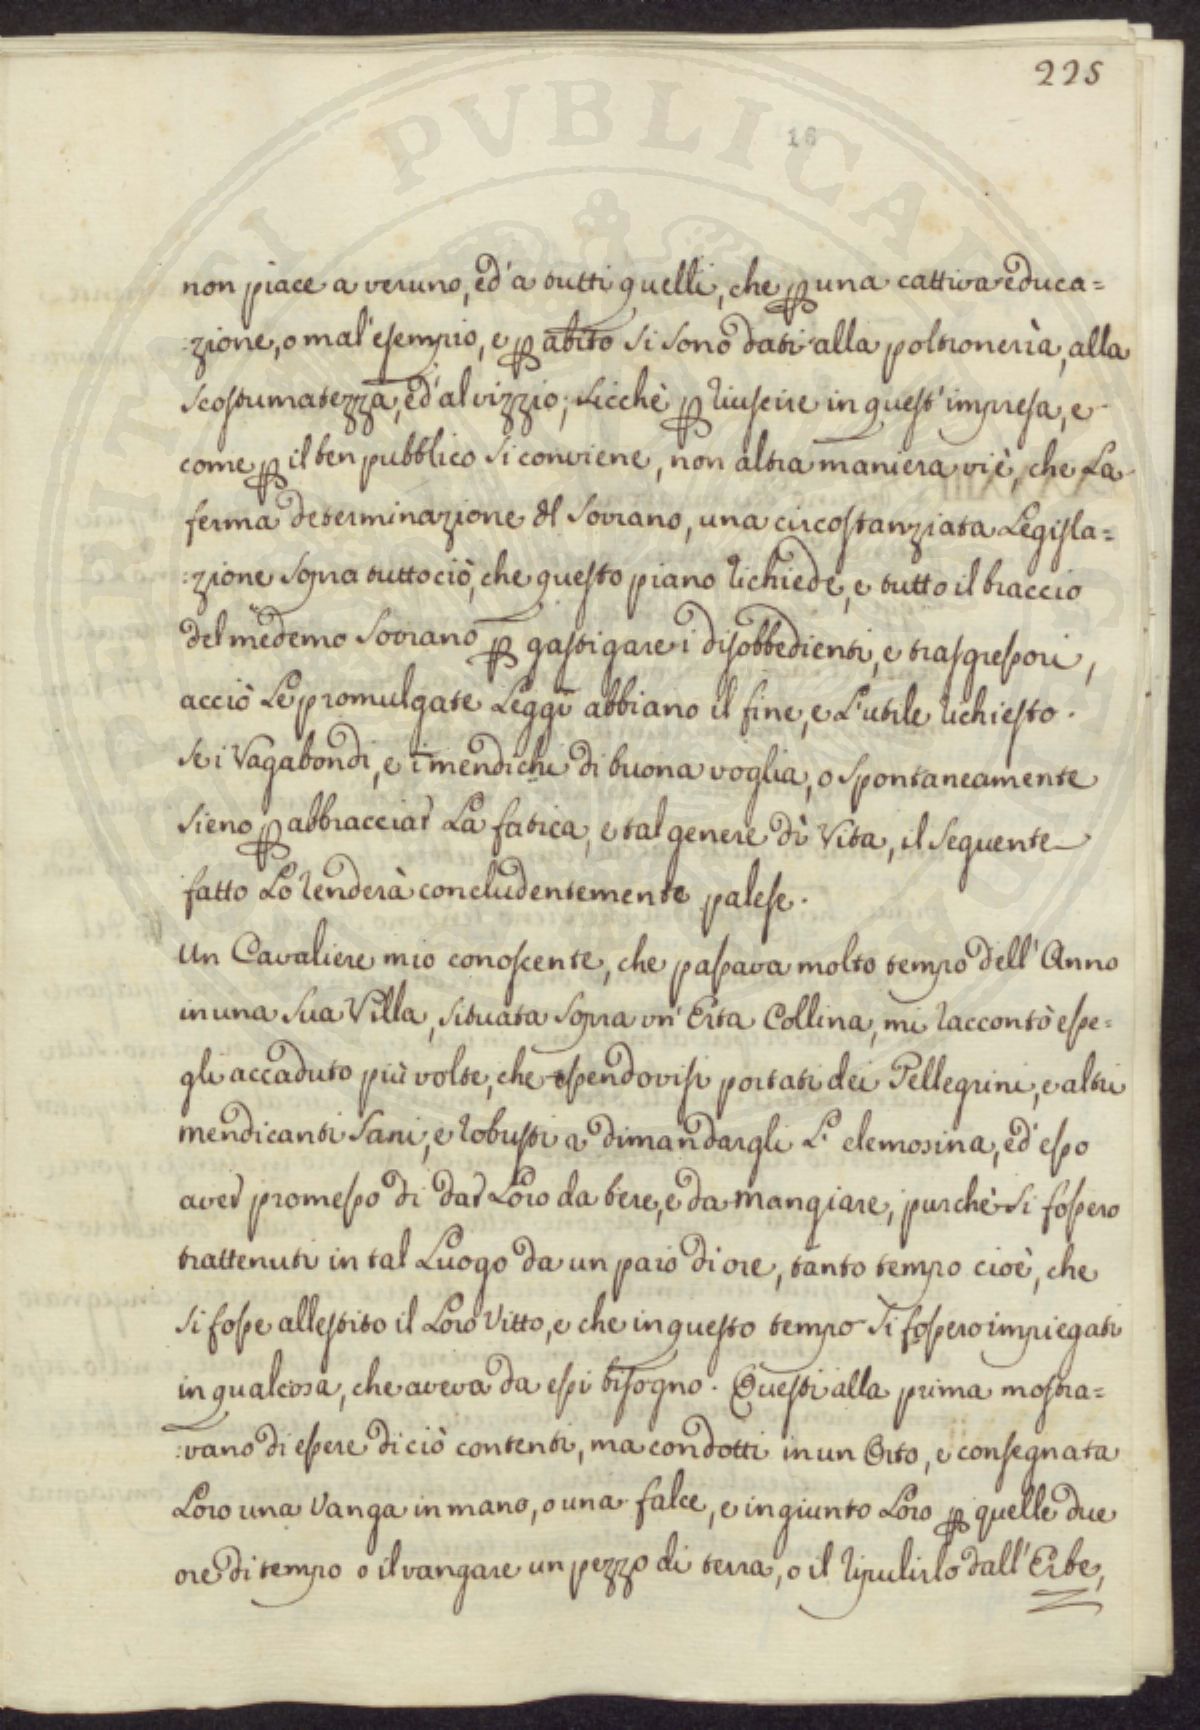 225
16
non piace a veruno, ed' a tutti quelli, che p una cattiva educa=
:zione, o mal' esempio, e p abito si sono dati alla poltronerìa, alla
scostumatezza, ed' al vizzio; sicchè p riuscire in quest' impresa, e
come p il ben pubblico si conviene, non altra maniera vi è, che La
ferma determinazione dl Sovrano, una circostanziata Legisla=
:zione sopra tuttociò, che questo piano richiede, e tutto il braccio
del medemo Sovrano p gastigare i disobbedienti, e trasgressori,
acciò Le promulgate Leggi abbiano il fine, e L'utile richiesto.
Se i Vagabondi, e i mendichi di buona voglia, o spontaneamente
sieno p abbracciar La fatica, e tal genere di Vita, il seguente
fatto Lo renderà concludentemente palese.
Un Cavaliere mio conoscente, che passava molto tempo dell' Anno
in una Sua Villa, situata sopra un' Erta Collina, mi raccontò esse=
gli accaduto più volte, che essendovisi portati dei Pellegrini, e altri
mendicanti sani, e robusti a dimandargli L' elemosina, ed' esso
aver promesso di dar Loro da bere, e da mangiare, purchè si fossero
trattenuti in tal Luogo da un paio di ore, tanto tempo cioè, che
si fosse allestito il Loro Vitto, e che in questo tempo si fossero impiegati
in qualcosa, che aveva da essi bisogno. Questi alla prima mostra=
:vano di essere di ciò contenti, ma condotti in un Orto, e consegnata
Loro una Vanga in mano, o una falce, e ingiunto Loro p quelle due
ore di tempo o il vangare un pezzo di terra, o il ripulirlo dall' Erbe,